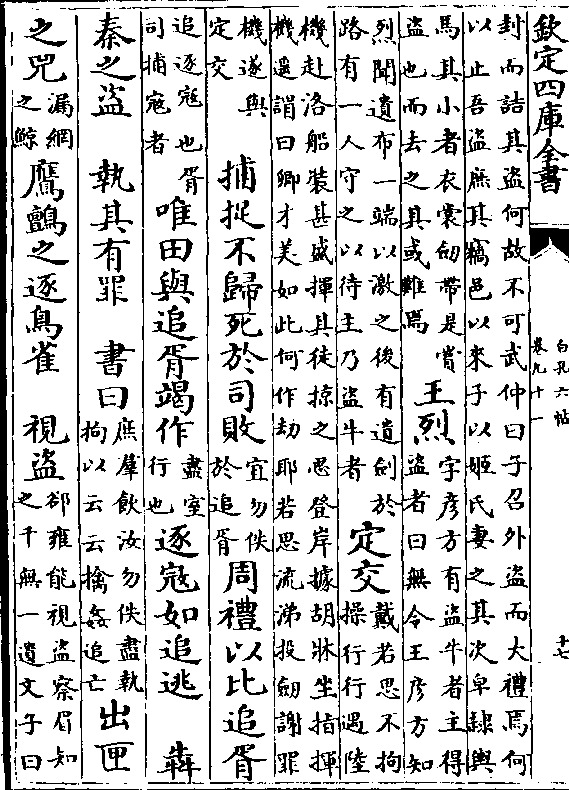 欽定四庫全書
白孔六帖
卷九十一
十七
封而詰其盜何故不可武仲曰子召外盜而大禮焉何
以止吾盜庶其竊邑以來子以姬氏妻之其次皁隸輿
馬其小者衣裳劒帶是賞
盜也而去之其或難焉
王烈
字彥方有盜牛者主得
盜者曰無令王彥方知
烈聞遺布一端以激之後有遺劒於
路有一人守之以待主乃盜牛者
定交
戴若思不拘
操行行遇陸
機赴洛船裝甚盛揮其徒掠之思登岸據胡牀坐指揮
機遥謂曰卿才美如此何作劫耶若思流涕投劒謝罪
機遂與
定交
捕捉不歸死於司敗
宜勿佚
於追胥
周禮以比追胥
追逐寇也胥
司捕寇者
唯田與追胥竭作
盡室
行也
逐寇如追逃 犇
秦之盜 執其有罪 書曰
庶羣飲汝勿佚盡執
拘以云云擒姦追亡
出匣
之兕
漏網
之鯨
鷹鸇之逐鳥雀 視盜
郤雍能視盜察眉知
之千無一遺文子曰